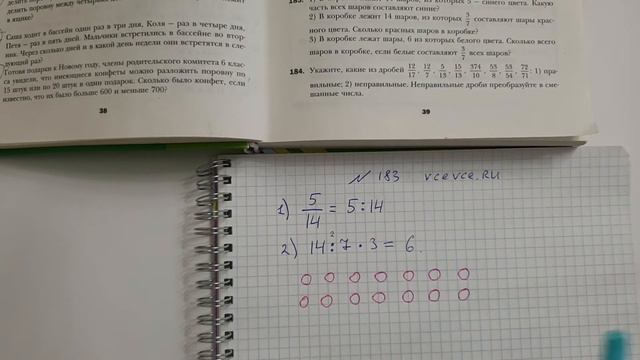 делить поровну между четырьмя
в ящике?
Саша ходит в бассейн один раз в три дня, Коля — раз в четыре дня,
Петя — раз в пять дней. Мальчики встретились в бассейне во втор-
ник. Через сколько дней и в какой день недели они встретятся в сле-
дующий раз?
Готовя подарки к Новому году, члены родительского комитета 6 клас-
са увидели, что имеющиеся конфеты можно разложить поровну по
15 штук или по 20 штук в один подарок. Сколько было конфет, если
известно, что их было больше 600 и меньше 700?
38
183.
В коробке лежит 14 шаров, из которых 5 — синего цвета. Какую
часть всех шаров составляют синие?
2) В коробке лежит 14 шаров, из которых 3/7 составляют шары крас-
ного цвета. Сколько красных шаров в коробке?
3) В коробке лежат шары, 6 из которых белого цвета. Сколько всего
шаров в коробке, если белые составляют 3/7 всех шаров?
184. Укажите, какие из дробей 12/17, 12/7, 5/13, 15/13, 374/10, 53/8, 53/54, 72/71: 1) пра-
вильные; 2) неправильные. Неправильные дроби преобразуйте в сме-
шанные числа.
39
№ 183 vcevce.ru
1) 5/14 = 5:14
2) 14:7·3 = 6.